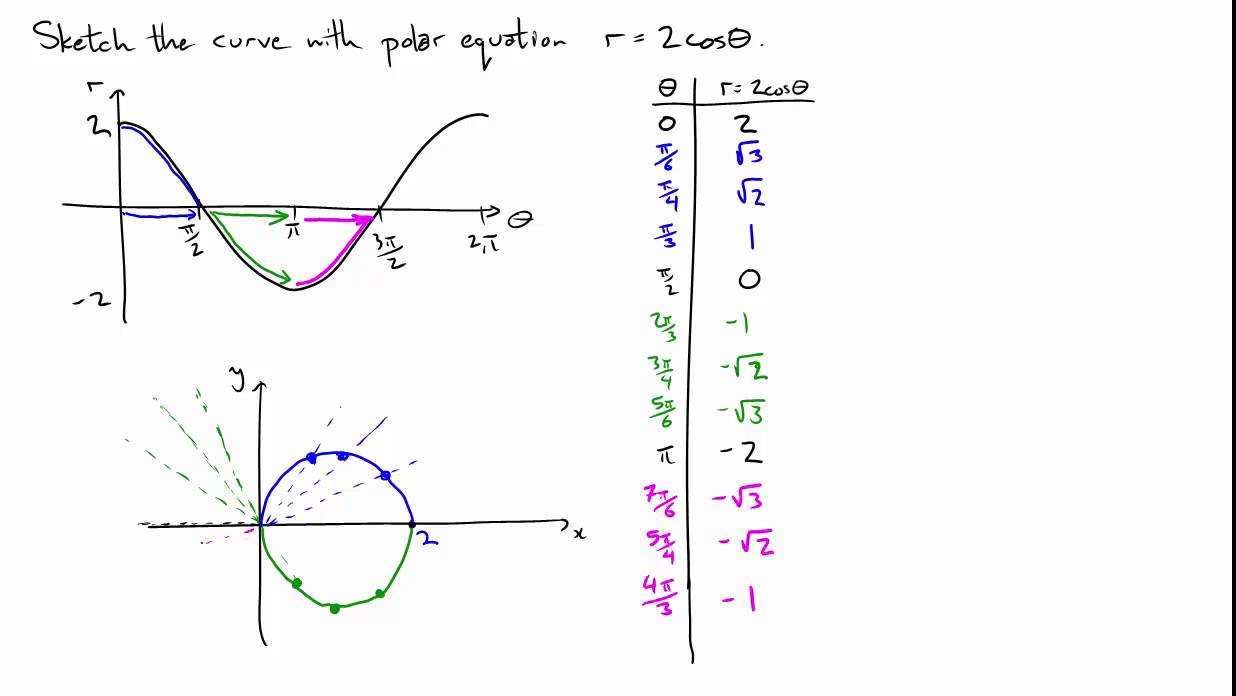 Sketch the curve with polar equation r = 2cosθ.
r
2
-2
π/2
π
3π/2
2π
θ
y
x
2
θ r = 2cosθ
0 2
π/6 √3
π/4 √2
π/3 1
π/2 0
2π/3 -1
3π/4 -√2
5π/6 -√3
π -2
7π/6 -√3
5π/4 -√2
4π/3 -1